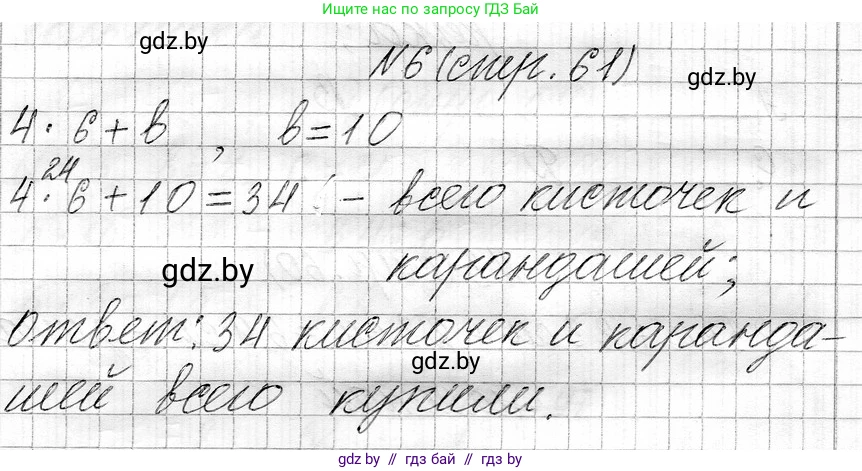 Ищите нас по запросу ГДЗ Бай
gdz.by
№6 (стр. 61)
gdz.by
4 · 6 + в , в = 10
24
4 · 6 + 10 = 34 – всего кисточек и
gdz.by
карандашей;
ответ: 34 кисточек и каранда-
gdz.by
шей всего купили.
gdz.by // гдз бай // gdz.by